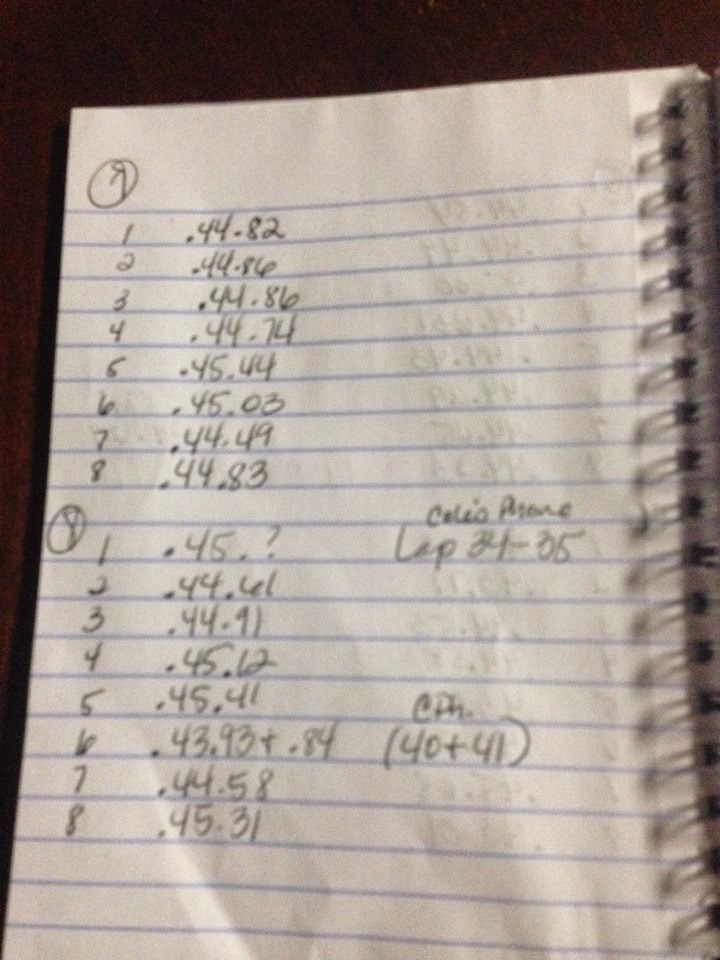 1 .44.82
2 .44.86
3 .44.86
4 .44.74
5 .45.44
6 .45.03
7 .44.49
8 .44.83
Phone
1 .45.? Lap 34-35
2 .44.61
3 .44.91
4 .45.12
5 .45.41
6 .43.93+ .84 (40+41)
7 .44.58
8 .45.31